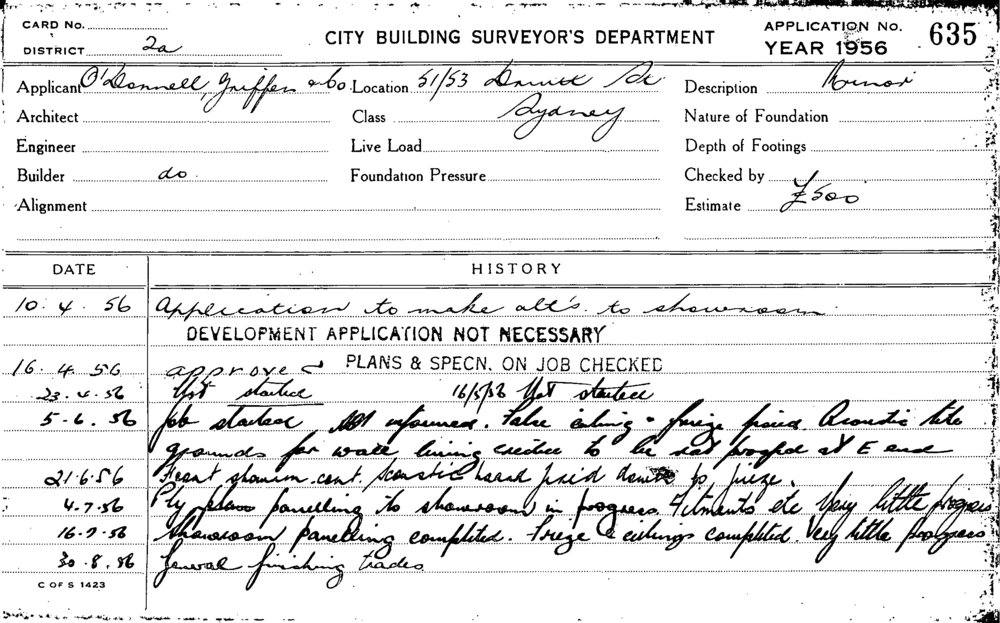 CARD No.
DISTRICT 2a
CITY BUILDING SURVEYOR'S DEPARTMENT
APPLICATION No. 635
YEAR 1956
Applicant O'Donnell, Griffen & Co. Location 51/53 Druitt St Description Minor
Architect Class Sydney Nature of Foundation
Engineer Live Load Depth of Footings
Builder do Foundation Pressure Checked by
Alignment Estimate £500
DATE HISTORY
10.4.56 Application to make alt's. to showroom
DEVELOPMENT APPLICATION NOT NECESSARY
PLANS & SPECN. ON JOB CHECKED
16.4.56 approved
23.4.56 Not started 16/5/56 Not started
5.6.56 Job started informed. False ceiling & frieze fixed Acoustic tile
grounds for wall lining to be rat proofed at E end
21.6.56 Front cont. acoustic fixed to frieze.
4.7.56 Ply panelling to showroom in progress. Fitments etc Very little progress
16.7.56 Showroom panelling completed. Frieze & ceilings completed. Very little progress
30.8.56 General finishing trades
C OF S 1423